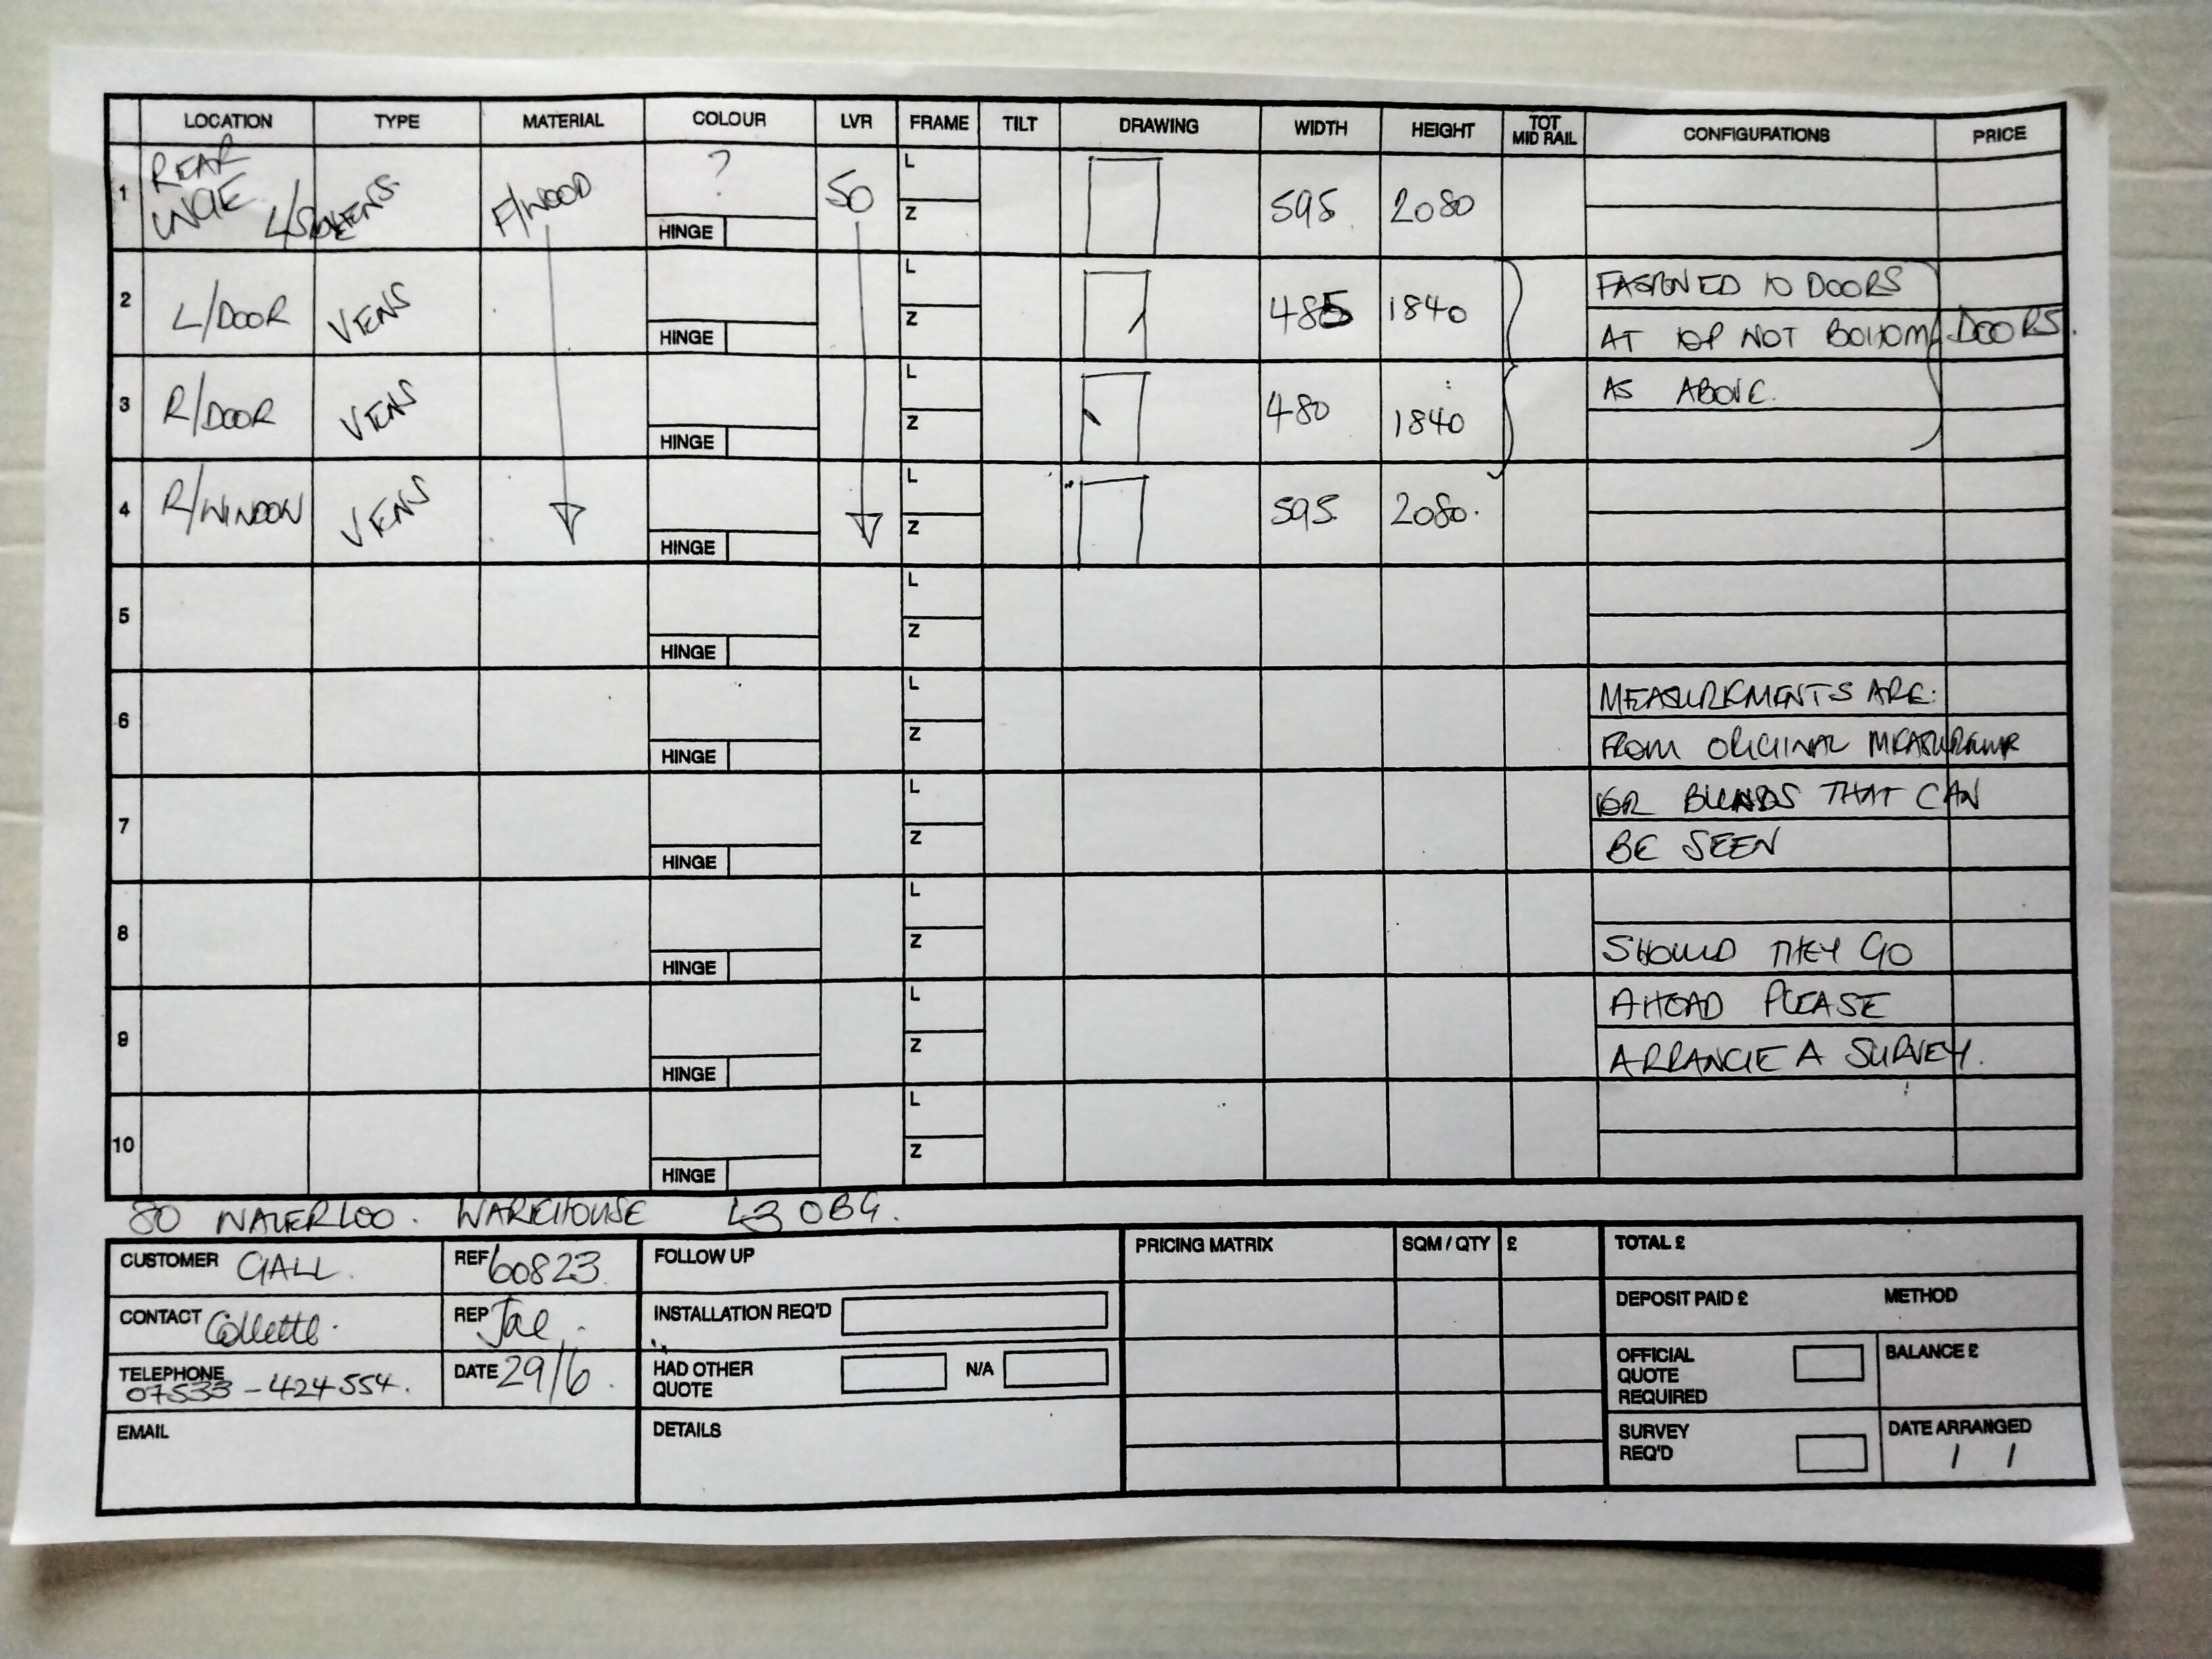 LOCATION TYPE MATERIAL COLOUR LVR FRAME TILT DRAWING WIDTH HEIGHT TOT MID RAIL CONFIGURATIONS PRICE
1 REAR L/SIDE VENS F/WOOD ? HINGE 50 L Z 595 2080
2 L/DOOR VENS HINGE L Z 485 1840 FASIONED TO DOORS
AT TOP NOT BOTTOM DOORS.
3 R/DOOR VENS HINGE L Z 480 1840 AS ABOVE.
4 R/WINDOW VENS HINGE L Z 595 2080.
5 HINGE L Z
6 HINGE L Z MEASUREMENTS ARE:
FROM ORIGINAL
7 HINGE L Z BLINDS THAT CAN
BE SEEN
8 HINGE L Z
SHOULD THEY GO
9 HINGE L Z AHEAD PLEASE
ARRANGE A SURVEY.
10 HINGE L Z
80 WATERLOO. WAREHOUSE L3 0BG.
CUSTOMER GALL. REF 60823
CONTACT Collette. REP Joe.
TELEPHONE 07533-424554. DATE 29/6.
EMAIL
FOLLOW UP
INSTALLATION REQ'D
HAD OTHER QUOTE N/A
DETAILS
PRICING MATRIX SQM / QTY £
TOTAL £
DEPOSIT PAID £ METHOD
OFFICIAL QUOTE REQUIRED BALANCE £
SURVEY REQ'D DATE ARRANGED
/ /